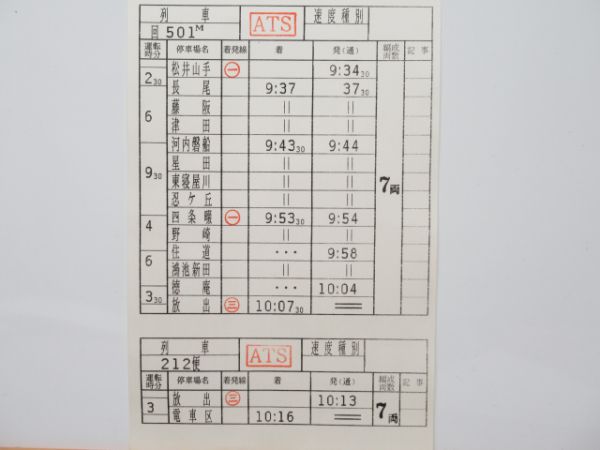 列 車 ATS 速度種別
回501M
運転時分 停車場名 着発線 着 発(通) 編成両数 記事
松井山手 一 9:34 30
2 30 長尾 9:37 37 30
6 藤阪 || ||
津田 || ||
河内磐船 9:43 30 9:44
9 30 星田 || ||
東寝屋川 || || 7両
忍ケ丘 || ||
四条畷 一 9:53 30 9:54
4 野崎 || ||
住道 ... 9:58
6 鴻池新田 || ||
徳庵 ... 10:04
3 30 放出 三 10:07 30 ==
列 車 ATS 速度種別
212便
運転時分 停車場名 着発線 着 発(通) 編成両数 記事
3 放出 三 10:13 7両
電車区 10:16 ==